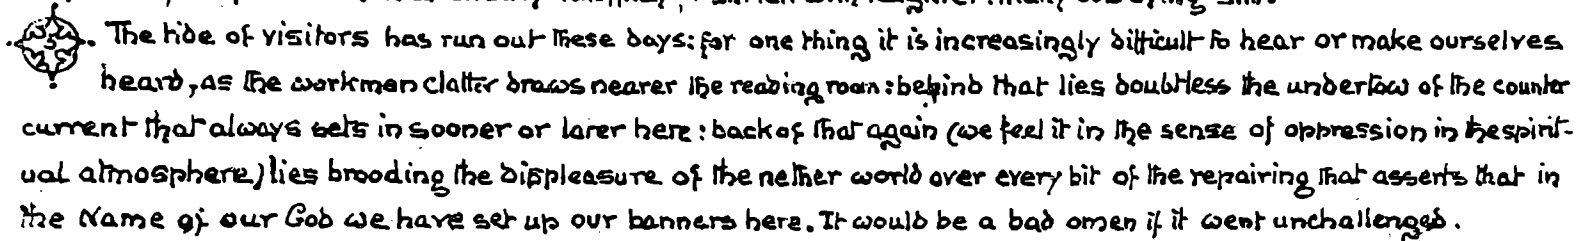 The tide of visitors has run out these days: for one thing it is increasingly difficult to hear or make ourselves
heard, as the workmen clatter draws nearer the reading room: behind that lies doubtless the undertow of the counter
current that always sets in sooner or later here: back of that again (we feel it in the sense of oppression in the spirit-
ual atmosphere) lies brooding the displeasure of the nether world over every bit of the repairing that asserts that in
the Name of our God we have set up our banners here. It would be a bad omen if it went unchallenged.